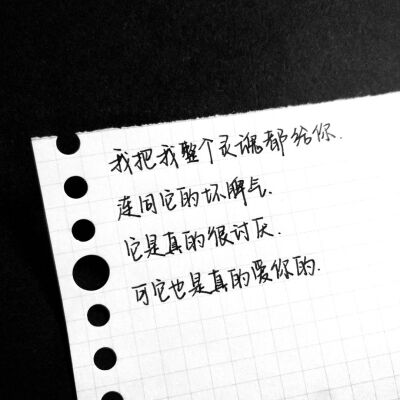 我把我整个灵魂都给你.
连同它的坏脾气.
它是真的很讨厌.
可它也是真的爱你的.